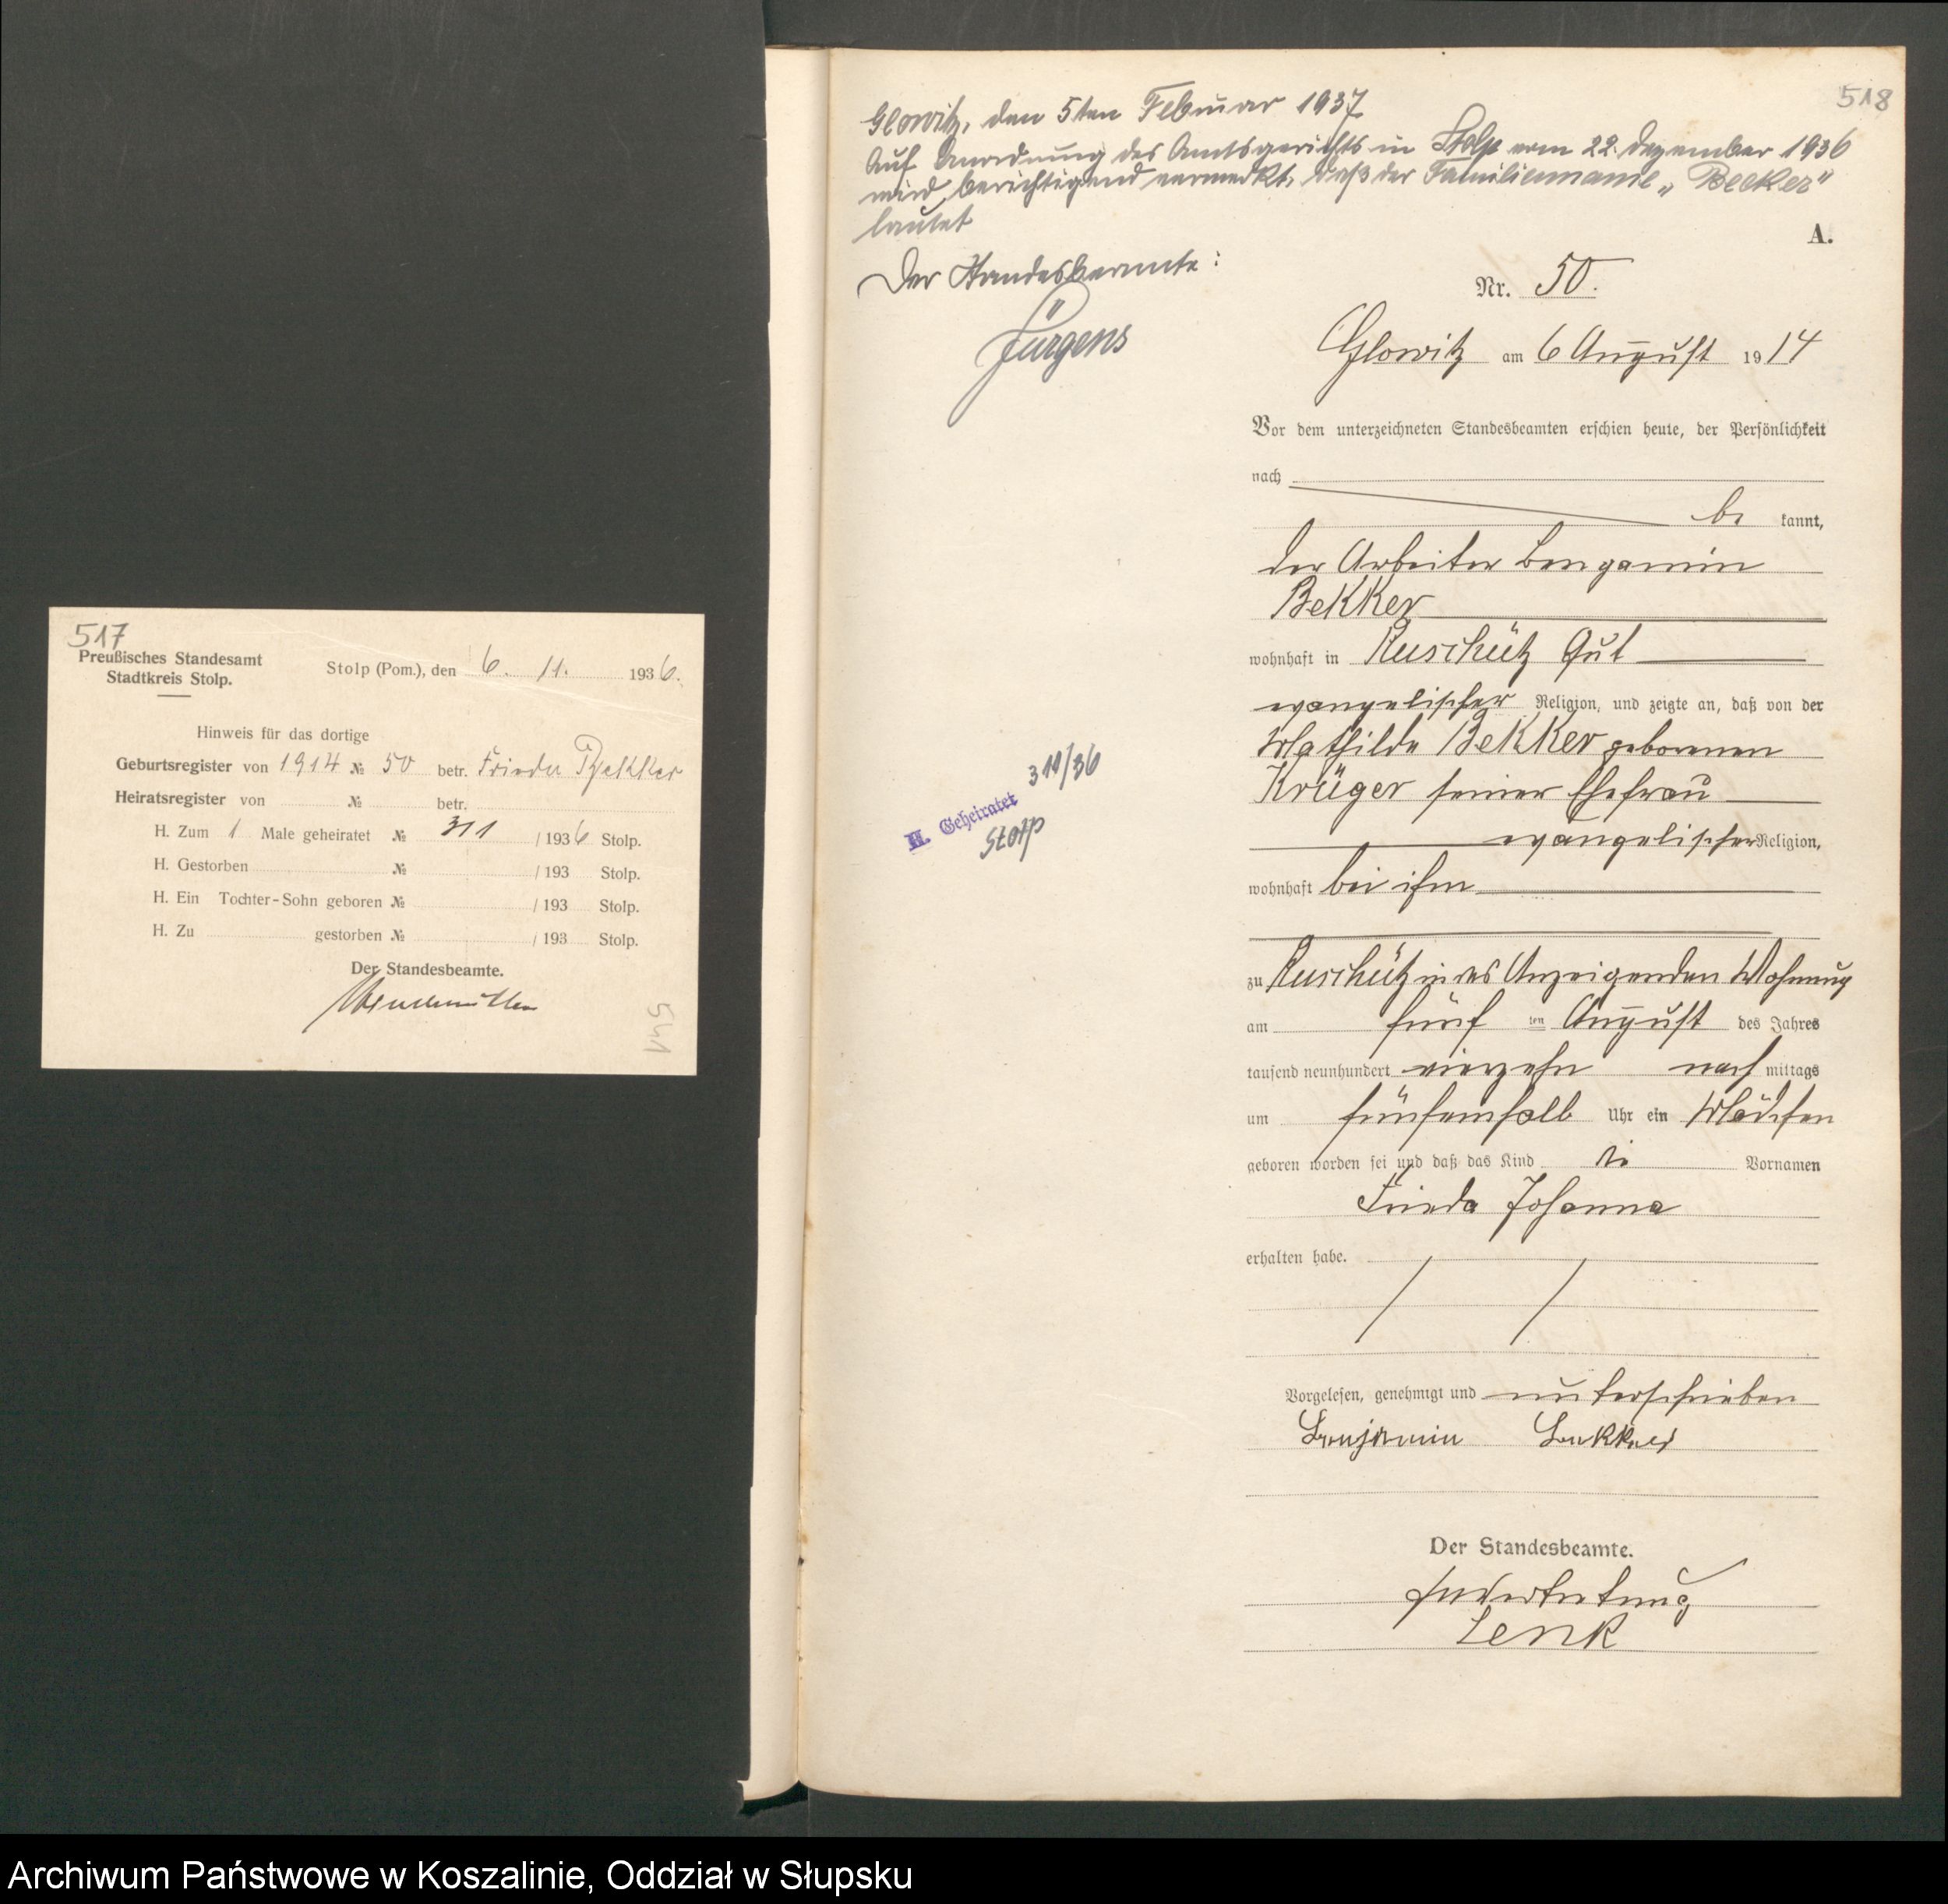 517
Preußisches Standesamt
Stadtkreis Stolp.
Stolp (Pom.), den 6. 11. 1936.
Hinweis für das dortige
Geburtsregister von 1914 № 50 betr. Frieda Bekker
Heiratsregister von № betr.
H. Zum 1 Male geheiratet № 311 / 1936 Stolp.
H. Gestorben № / 193 Stolp.
H. Ein Tochter-Sohn geboren № / 193 Stolp.
H. Zu gestorben № / 193 Stolp.
Der Standesbeamte.
541
518
Glowitz, den 5ten Februar 1937
Auf Anordnung des Amtsgerichts in Stolp vom 22. Dezember 1936
wird berichtigend vermerkt, daß der Familienname „Becker"
lautet
Der Standesbeamte:
Jürgens
A.
Nr. 50.
Glowitz am 6 August 1914
Vor dem unterzeichneten Standesbeamten erschien heute, der Persönlichkeit
nach
be kannt,
der Arbeiter Bengamin
Bekker
wohnhaft in Ruschütz Gut
evangelischer Religion, und zeigte an, daß von der
Mathilde Bekker geborenen
Krüger seiner Ehefrau
evangelischer Religion,
wohnhaft bei ihm
zu Ruschütz in des Anzeigenden Wohnung
am fünf ten August des Jahres
tausend neunhundert vierzehn nach mittags
um fünfeinhalb Uhr ein Mädchen
geboren worden sei und daß das Kind die Vornamen
Frieda Johanna
erhalten habe.
Vorgelesen, genehmigt und unterschrieben
Benjamin Bekker
Der Standesbeamte.
In Vertretung
Lenk
H. Geheiratet 311/36
Stolp
Archiwum Państwowe w Koszalinie, Oddział w Słupsku